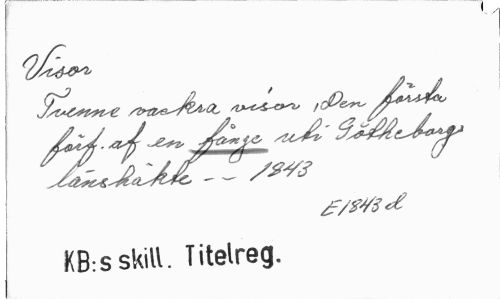 Visor
Tvenne vackra visor, Den första
förf. af en fånge uti Götheborgs
länshäkte -- 1843
E1843d
KB:s skill. Titelreg.